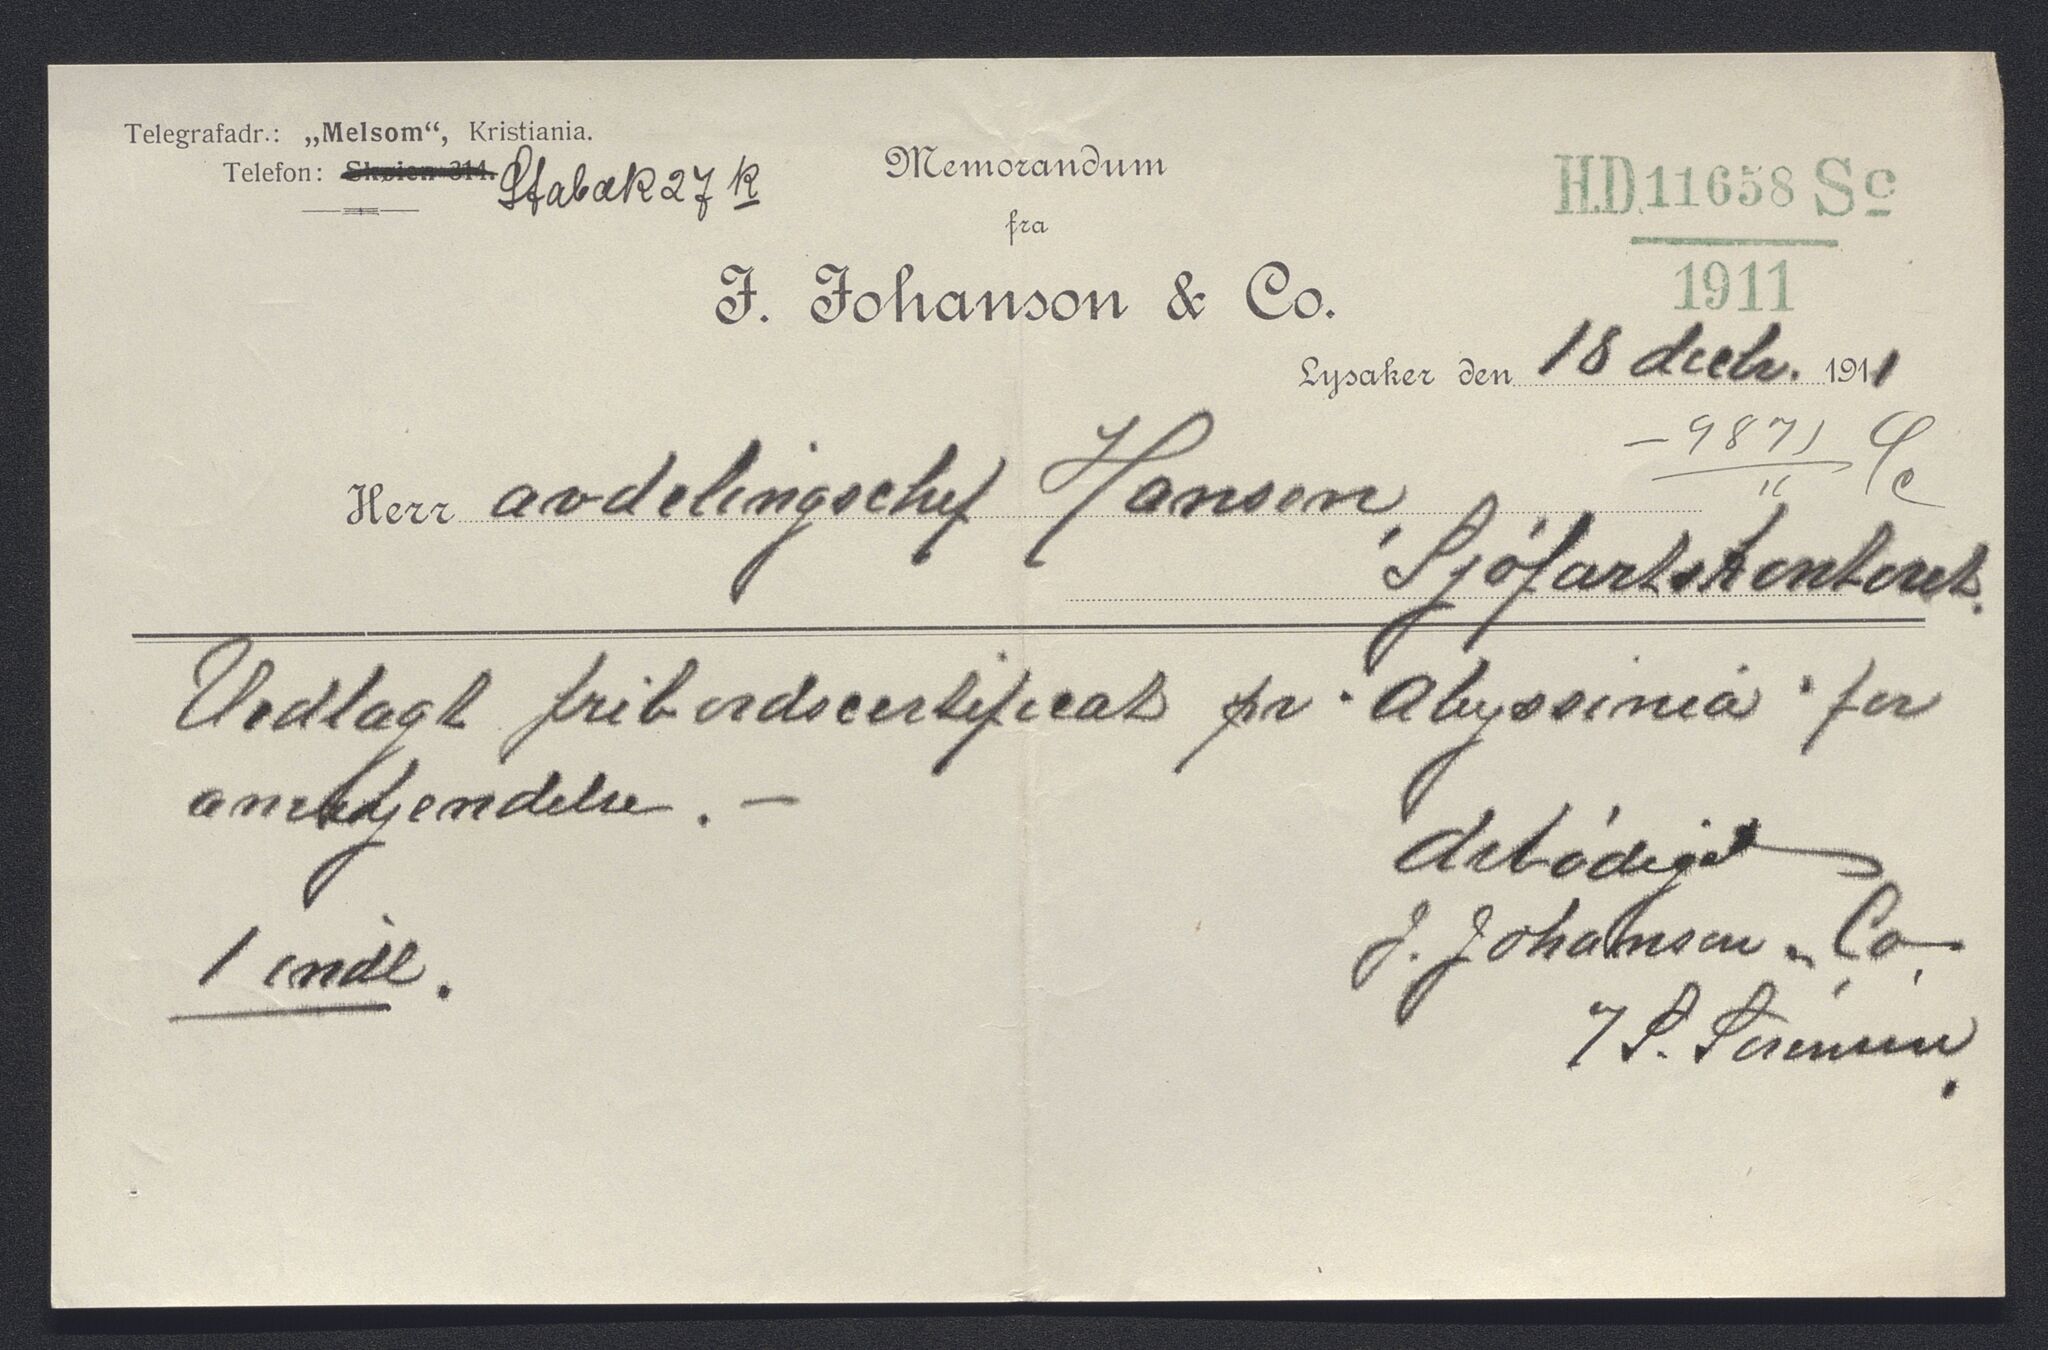 Telegrafadr.: „Melsom“, Kristiania.
Telefon: Skøien 314. Stabæk 27 K
Memorandum
fra
J. Johanson & Co.
H.D. 11658 Sc
1911
Lysaker den 18 decbr. 1911
- 9871 Sc
11
Herr avdelingschef Hansen,
Sjöfartskontoret.
Vedlagt fribordscertificat pr "Abyssinia" for
anerkjendelse. —
ærbödigst
J. Johanson & Co.
1 indl.
S. Sörensen.